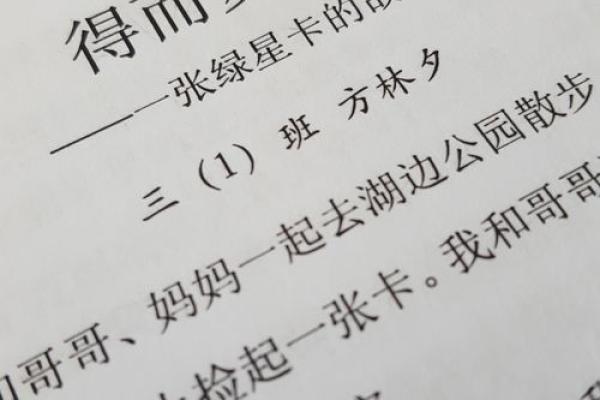 得而
——一张绿星卡的故
三（1）班 方林夕
和哥哥、妈妈一起去湖边公园散步
捡起一张卡。我和哥哥